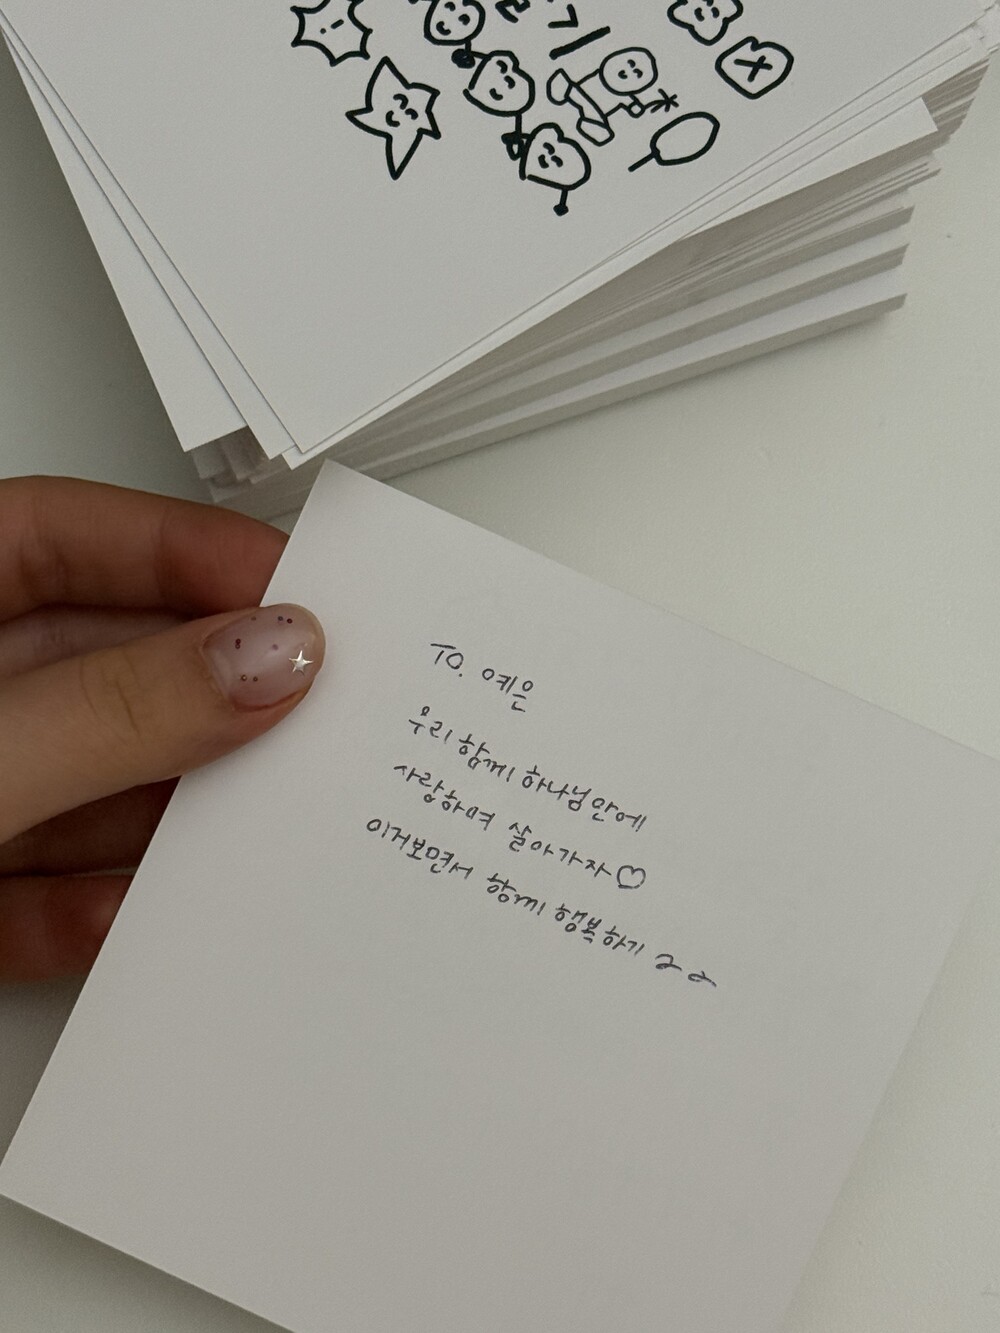 TO. 예은
우리 함께 하나님 안에
사랑하며 살아가자♡
이거보면서 항께 행복하기 ~~